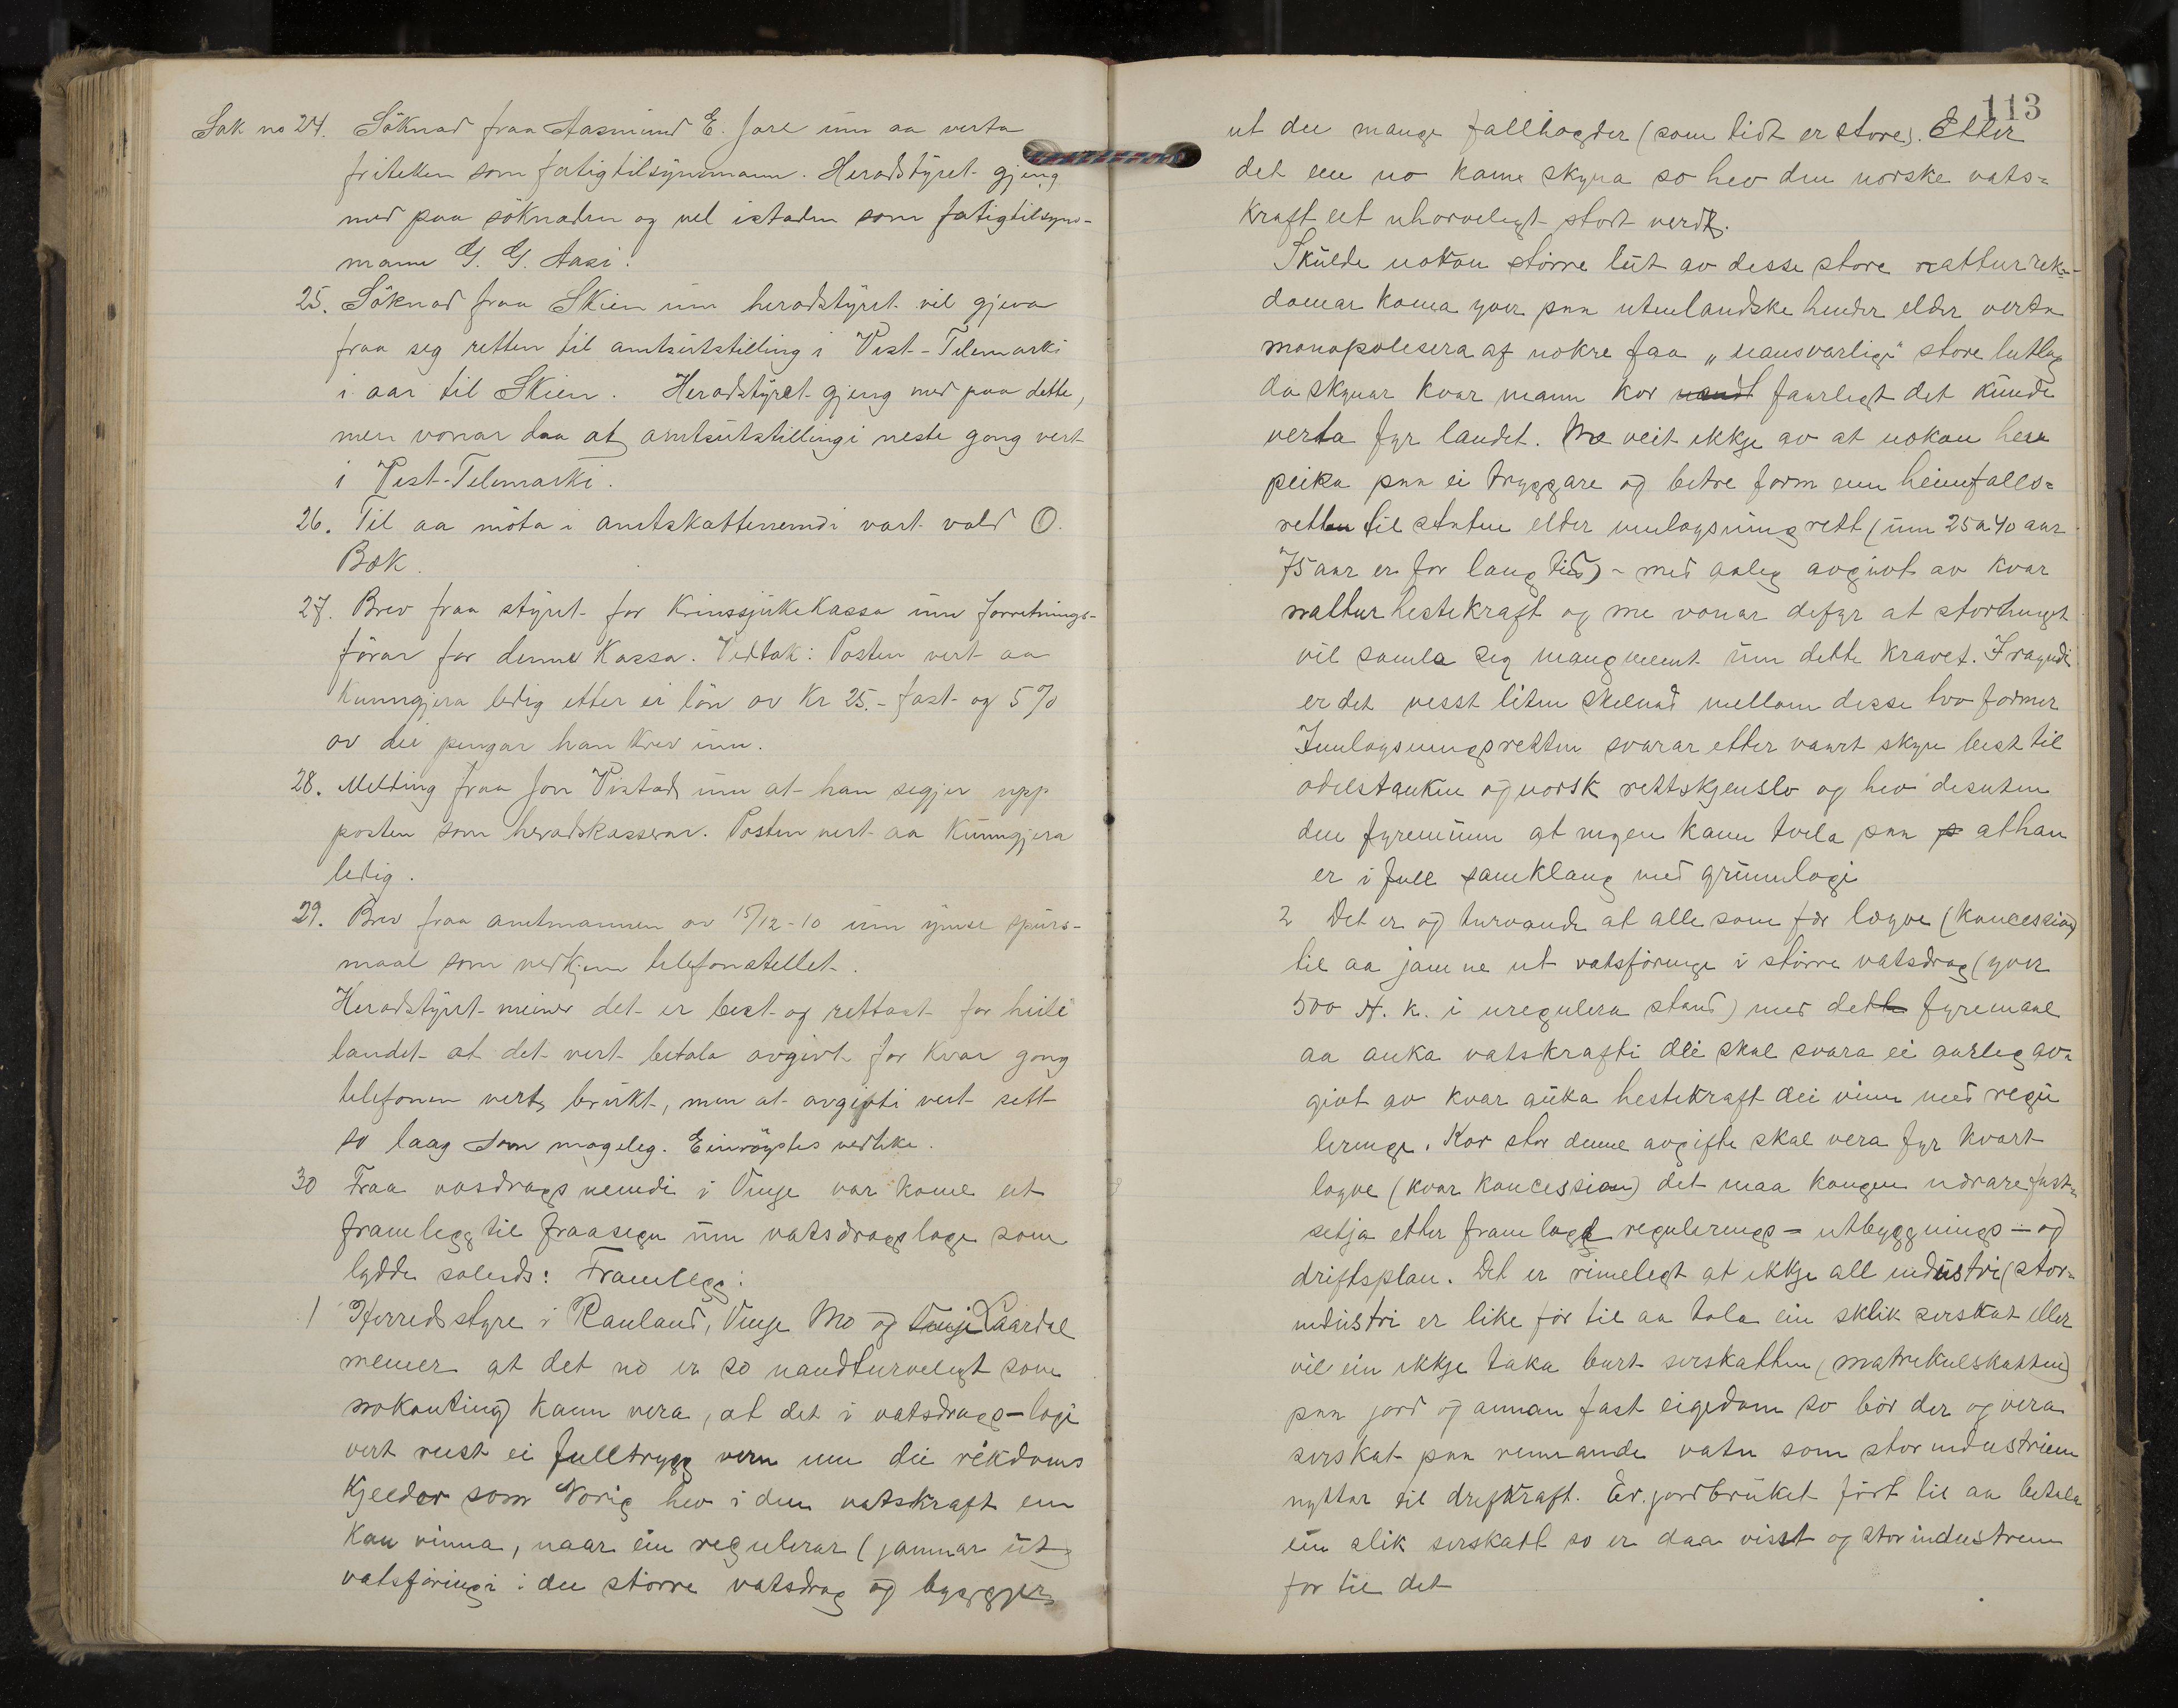 Sak no 24. Söknad fraa Aasmund E. Jore um aa verta
friteken som fatigtilsynsmann. Heradstyret gjeng
med paa söknaden og vel istaden som fatigtilsyns-
mann G. G. Aasi.
25. Söknad fraa Skien um heradstyret vil gjeva
fraa seg retten til amtsutstilling i Vest-Telemarki
i aar til Skien. Heradstyret gjeng med paa dette,
men vonar daa at amtsutstillingi neste gong vert
i Vest-Telemarki.
26. Til aa möta i amtskattenemdi vart vald O.
Bøk.
27. Brev fraa styret for Krinssjukekassa um forretnings-
förar for denne Kassa. Vedtak: Posten vert aa
Kunngjera ledig etter ei lön av Kr 25.- fast og 5%
av dei pengar han krev inn.
28. Melding fraa Jon Vistad um at han segjer upp
posten som heradskasserar. Posten vert aa Kunngjera
ledig.
29. Brev fraa amtmannen av 15/12-10 um ymse spurs-
maal som vedkjem telefonstellet.
Heradstyret meiner det er best og rettast for heile
landet at det vert betala avgivt for kvar gong
telefonen vert brukt, men at avgivti vert sett
so laag som mogeleg. Einröystes vedtike.
30 Fraa vasdragsnemdi i Vinje var kome eit
framlegg til fraasegn um vatsdragsloge som
lydde soleids: Framlegg:
1 Herredsstyre i Rauland, Vinje Mo og Vinje Laardal
meiner at det no er so naudturvelegt som
nokonting kann vera, at det i vatsdrags-logi
vert reist ei fulltrygg vern um dei rikdoms
Kjeldor som Norig hev i den vatskraft ein
kan vinna, naar ein regulerar (jamnar ut
vatsföringi i dei större vatsdrag og byggjer
113
ut dei mange fallhøgder (som tidt er store). Etter
det ein no kann skyna so hev den norske vats-
kraft eit uhorvelegt stort verdt.
Skulde nokon större lut av desse store natturrek-
domar koma yver paa utenlandske hender elder verta
monopolisera af nokre faa „uansvarlige" store lutlag
da skynar kvar mann kor naudt faarlegt det kunde
verta fyr landet. Me veit ikkje av at nokon heve
peika paa ei tryggare og betre form enn heimfalls-
retten til staten elder innløysningsrett (um 25 a 40 aar
75 aar er for lang tid) - med aarleg avgivt av kvar
natturhestekraft og me vonar defyr at stortinget
vil samla seg mangment um dette kravet. I røyndi
er det visst liten skilnad mellom desse tvo former
Innløysningsretten svarar etter vaart skyn best til
odelstanken og norsk rettskjensle og hev desuten
den fyremunn at ingen kann tvila paa at han
er i full samklang med grunnlogi
2 Det er og turvande at alle som fær løyve (koncession)
til aa jamne ut vatsföringi i större vatsdrag (yver
500 H. K. i uregulera stand) med dette fyremaal
aa auka vatskrafti dei skal svara ei aarleg av-
givt av kvar auka hestekraft dei vinn med regu
leringi. Kor stor denne avgifte skal vera fyr kvart
løyve (kvar koncession) det maa kongen nærare fast-
setja etter framlagd regulerings- utbyggnings- og
driftsplan. Det er rimelegt at ikkje all industri (stor-
industri er like för til aa tola ein slik serskat eller
vil ein ikkje taka burt serskatten (matrikulskatten)
paa jord og annan fast eigedom so bör der og vera
serskat paa rennande vatn som storindustrien
nyttar til drifkraft. Er jordbruket fört til aa betala
ein slik serskatt so er daa visst og storindustrien
för til det